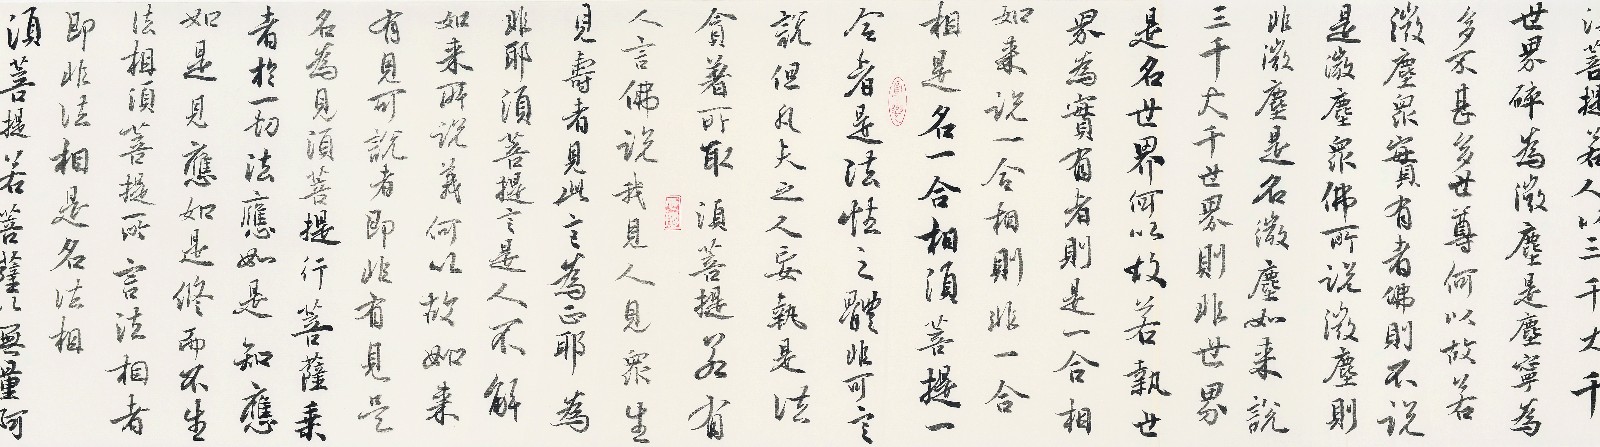 須菩提若人以三千大千
世界碎為微塵是塵寧為
多不甚多世尊何以故若
微塵眾實有者佛則不說
是微塵眾佛所說微塵則
非微塵是名微塵如来說
三千大千世界則非世界
是名世界何以故若執世
界為實有者則是一合相
如来說一合相則非一合
相是名一合相須菩提一
合者是法性之體非可言
說但凡夫之人妄執是法
貪著所取 須菩提若有
人言佛說我見人見眾生
見壽者見此言為正耶為
非耶須菩提言是人不解
如来所說義何以故如来
有見可說者即非有見是
名為見須菩提行菩薩乘
者於一切法應如是知應
如是見應如是修而不生
法相須菩提所言法相者
即非法相是名法相
須菩提若菩薩以無量阿